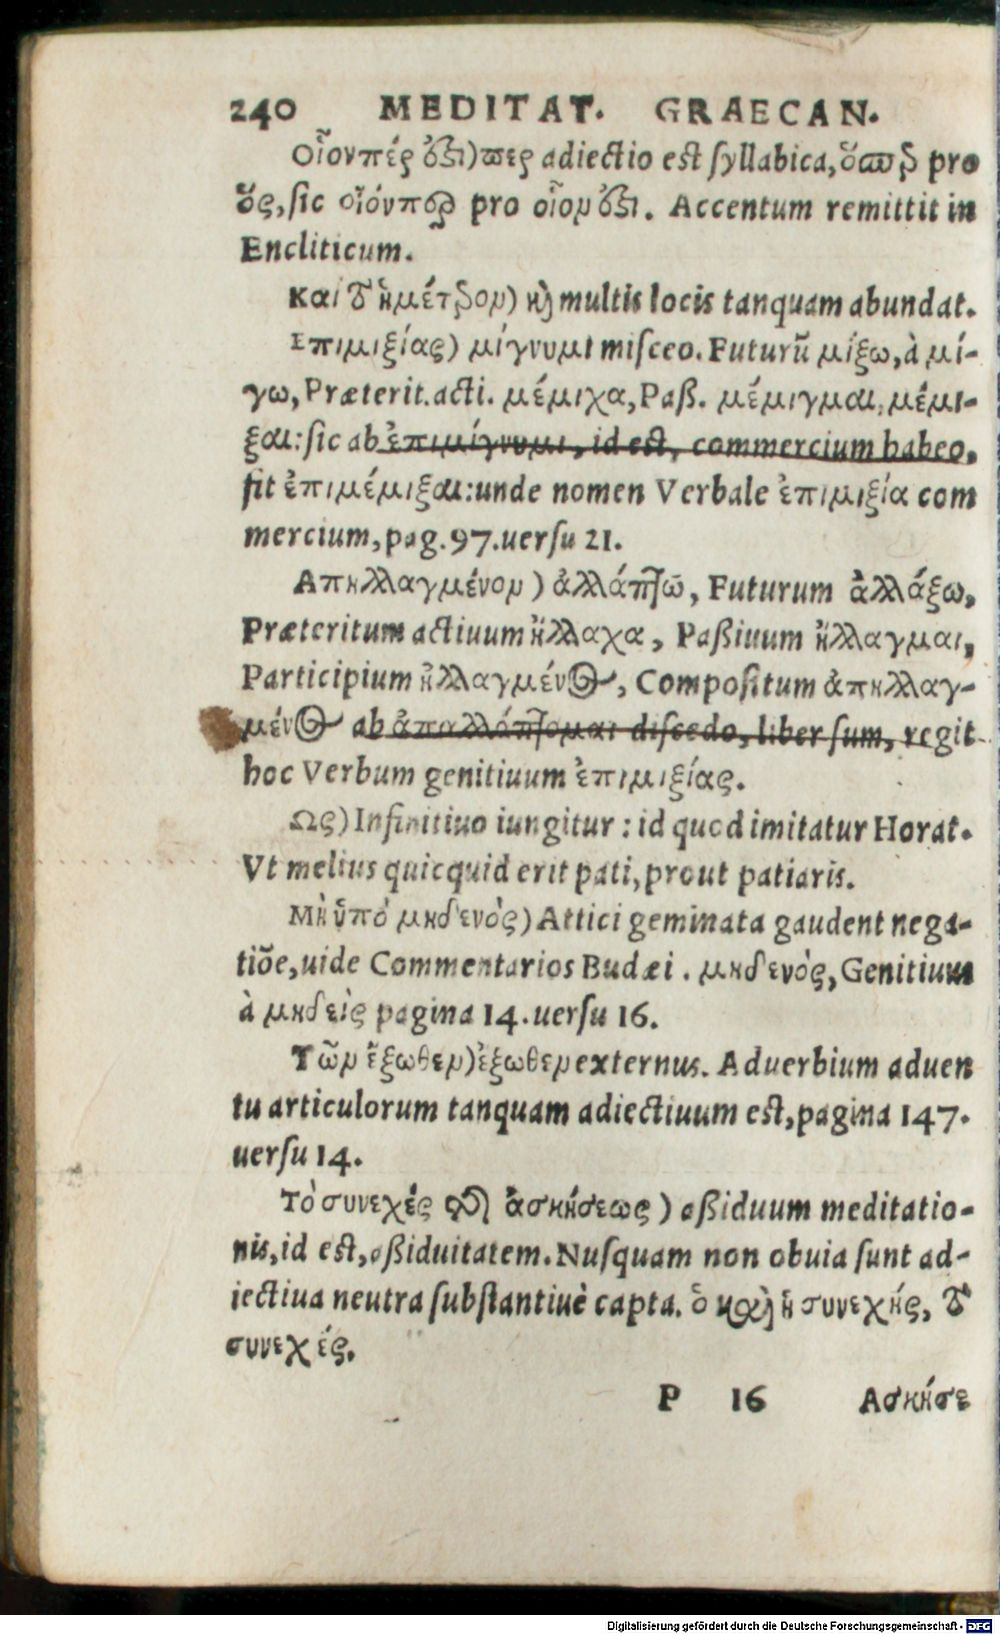 240 MEDITAT. GRAECAN.
Οἷονπές ὅξι) περ adiectio est syllabica, ὅσπερ pro
ὅς, sic οἷόνπερ pro οἷον ὅξι. Accentum remittit in
Encliticum.
Καὶ τὸ ἡμέτερον) καὶ multis locis tanquam abundat.
Επιμιξίας) μίγνυμι misceo. Futurũ μίξω, à μί-
γω, Præterit. acti. μέμιχα, Paß. μέμιγμαι, μέμι-
ξαι: sic ab ἐπιμίγνυμι, id est, commercium habeo,
fit ἐπιμέμιξαι: unde nomen Verbale ἐπιμιξία com
mercium, pag. 97. uersu 21.
Απηλλαγμένον) ἀλλάττω, Futurum ἀλλάξω,
Præteritum actiuum ἤλλαχα, Paßiuum ἤλλαγμαι,
Participium ἠλλαγμένος, Compositum ἀπηλλαγ-
μένος ab ἀπαλλάττομαι discedo, liber sum, regit
hoc Verbum genitiuum ἐπιμιξίας.
Ως) Infinitiuo iungitur: id quod imitatur Horat.
Vt melius quicquid erit pati, prout patiaris.
Μὴ ὑπὸ μηδενὸς) Attici geminata gaudent nega-
tiõe, uide Commentarios Budæi. μηδενὸς, Genitiuus
à μηδεὶς pagina 14. uersu 16.
Τῶν ἔξωθεν) ἔξωθεν externus. Aduerbium aduen
tu articulorum tanquam adiectiuum est, pagina 147.
uersu 14.
Τὸ συνεχές τῆς ἀσκήσεως) aßiduum meditatio-
nis, id est, aßiduitatem. Nusquam non obuia sunt ad-
iectiua neutra substantiuè capta. ὁ καὶ ἡ συνεχής, τὸ
συνεχές.
P 16 Ασκήσε
Digitalisierung gefördert durch die Deutsche Forschungsgemeinschaft - DFG